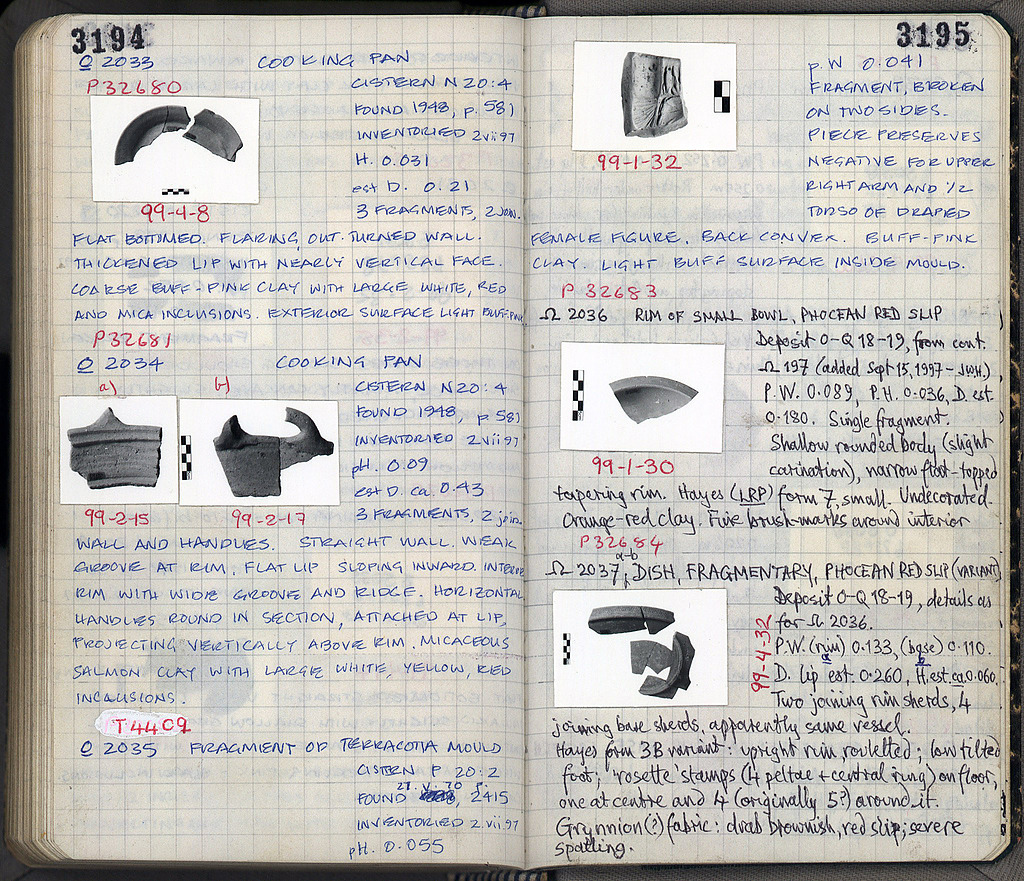 3194
O 2033 COOKING PAN
P32680
CISTERN N 20:4
FOUND 1948, p. 581
INVENTORIED 2vii97
H. 0.031
est D. 0.21
3 FRAGMENTS, 2 JOIN.
99-4-8
FLAT BOTTOMED. FLARING, OUT-TURNED WALL.
THICKENED LIP WITH NEARLY VERTICAL FACE.
COARSE BUFF-PINK CLAY WITH LARGE WHITE, RED
AND MICA INCLUSIONS. EXTERIOR SURFACE LIGHT BUFF-PINK
P32681
O 2034 COOKING PAN
a) b)
CISTERN N 20:4
FOUND 1948, p 581
INVENTORIED 2vii97
pH. 0.09
est D. ca. 0.43
3 FRAGMENTS, 2 join.
99-2-15 99-2-17
WALL AND HANDLES. STRAIGHT WALL. WEAK
GROOVE AT RIM. FLAT LIP SLOPING INWARD. INTERIOR
RIM WITH WIDE GROOVE AND RIDGE. HORIZONTAL
HANDLES ROUND IN SECTION, ATTACHED AT LIP,
PROJECTING VERTICALLY ABOVE RIM. MICACEOUS
SALMON CLAY WITH LARGE WHITE, YELLOW, RED
INCLUSIONS.
T4409
O 2035 FRAGMENT OF TERRACOTTA MOULD
CISTERN P 20:2
27.V.70 p.
FOUND 2415
INVENTORIED 2.vii97
pH. 0.055
3195
p.W 0.041
FRAGMENT, BROKEN
ON TWO SIDES.
PIECE PRESERVES
NEGATIVE FOR UPPER
RIGHT ARM AND 1/2
TORSO OF DRAPED
99-1-32
FEMALE FIGURE. BACK CONVEX. BUFF-PINK
CLAY. LIGHT BUFF SURFACE INSIDE MOULD.
P 32683
Ω 2036 RIM OF SMALL BOWL, PHOCEAN RED SLIP
Deposit O-Q 18-19, from cont.
Ω 197 (added Sept 15, 1997 - JWH)
P.W. 0.089, P.H. 0.036, D. est.
0.180. Single fragment.
Shallow rounded body (slight
carination), narrow flat-topped
99-1-30
tapering rim. Hayes (LRP) form 7, small. Undecorated.
Orange-red clay. Fine brush-marks around interior
P32684
a-b
Ω 2037, DISH, FRAGMENTARY, PHOCEAN RED SLIP (VARIANT)
Deposit O-Q 18-19, details as
for Ω 2036.
P.W. (rim) 0.133, (base) 0.110.
a b
D. lip est. 0.260, H. est. ca. 0.060.
Two joining rim sherds, 4
99-4-32
joining base sherds, apparently same vessel.
Hayes form 3B variant: upright rim, rouletted; low tilted
foot; 'rosette' stamps (4 peltae + central ring) on floor,
one at centre and 4 (originally 5?) around it.
Grynnion (?) fabric: drab brownish, red slip; severe
spalling.